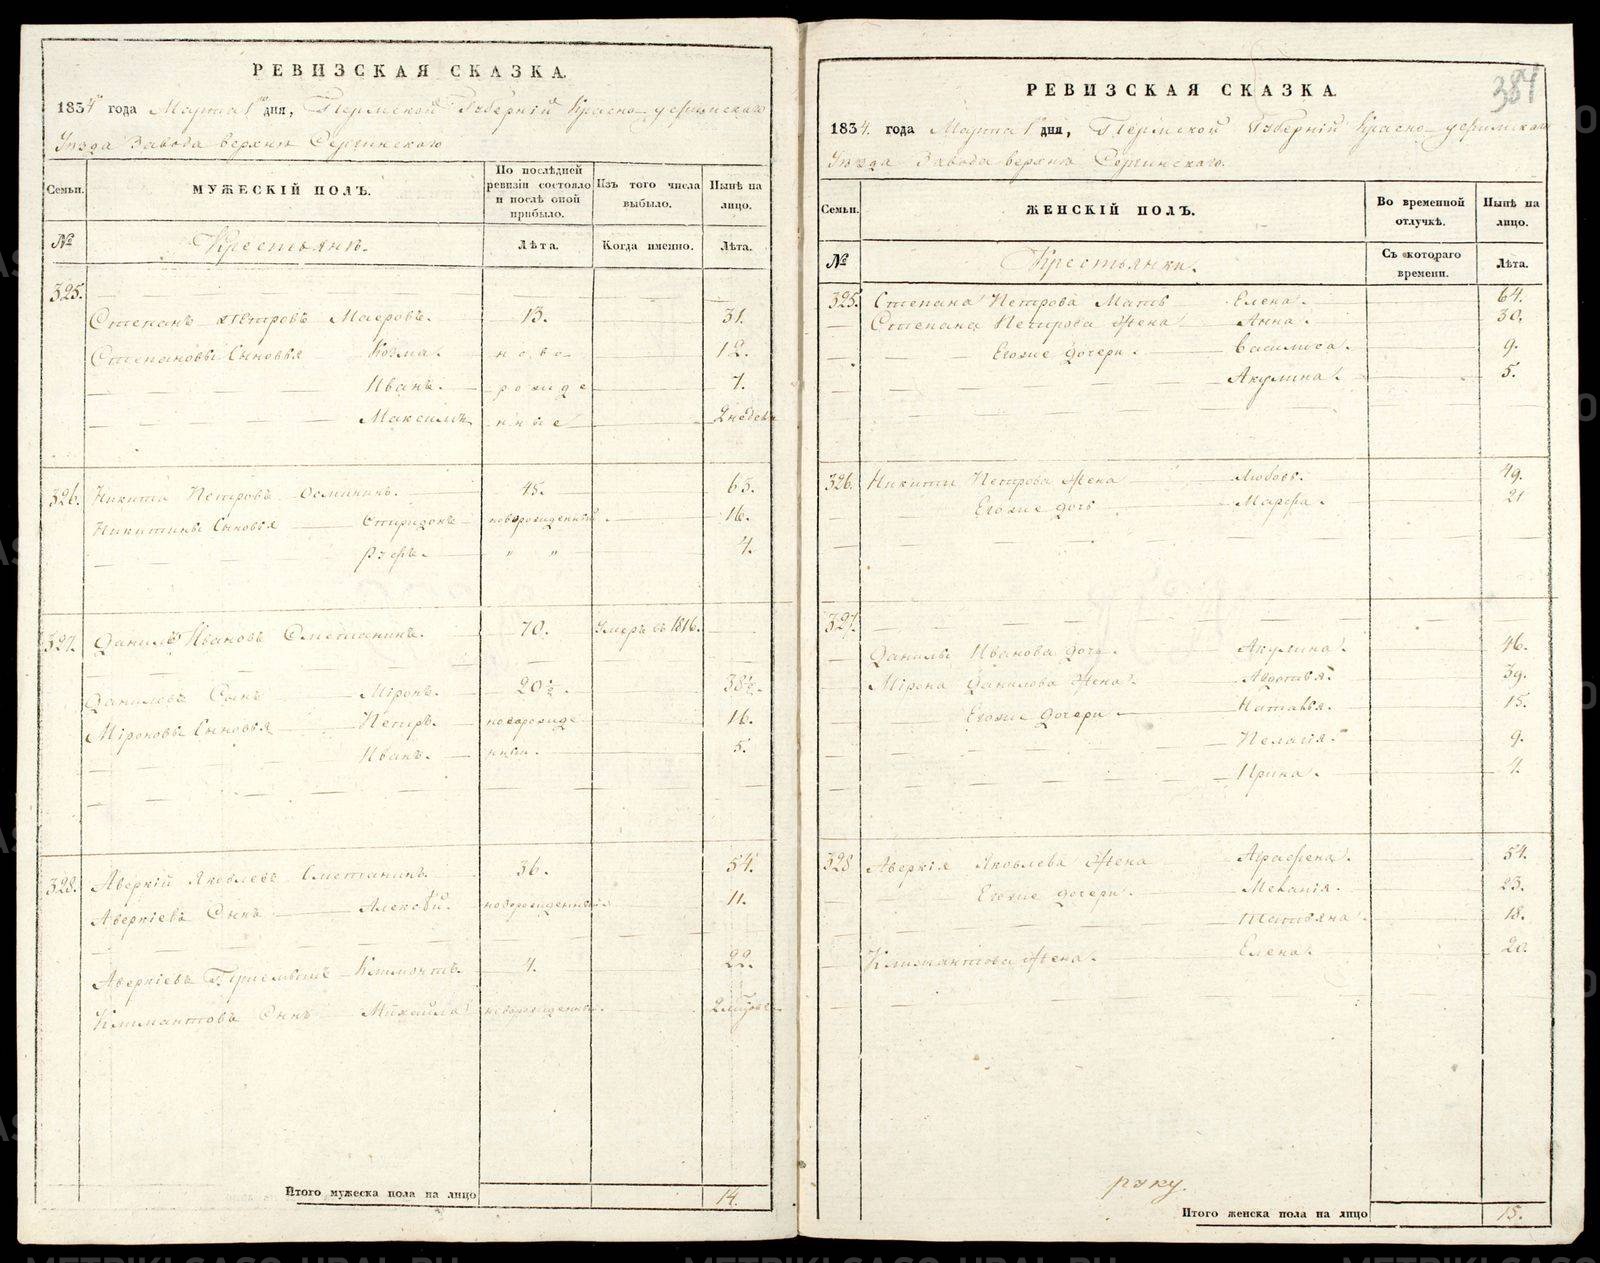 РЕВИЗСКАЯ СКАЗКА.
1834 года Марта 1 дня, Пермской Губернїи Красно-уфимскаго
Уѣзда Завода верхне Сергинскаго
Семьи.
МУЖЕСКІЙ ПОЛЪ.
По послѣдней ревизіи состояло и послѣ оной прибыло.
Изъ того числа выбыло.
Нынѣ на лицо.
№
Крестьянѣ.
Лѣта.
Когда именно.
Лѣта.
325.
Степанъ Петровъ 13. 31.
Степановы Сыновья Козма. ново 12.
Иванъ. рожде 7.
Максимъ нные 2 недѣли
326. Никита Петровъ 45. 63.
Никитины Сыновья Спиридонъ новорожденный. 16.
Руфъ. " " 4.
327. Данило Ивановъ Сметанинъ. 70. Умеръ въ 1816.
Даниловъ Сынъ Мiронъ. 20½. 38½.
Мiроновы Сыновья Петръ. новорожде 16.
Иванъ. нные. 5.
328. Аверкій Яковлевъ Сметанинъ. 36. 54.
Аверкіевъ Сынъ Алексѣй. новорожденный 11.
Аверкіевъ Климонтъ. 4. 22.
Климантовъ Сынъ Михайла новорожденный.
Итого мужеска пола на лицо 14.
384
РЕВИЗСКАЯ СКАЗКА.
1834. года Марта 1 дня, Пермской Губернїи Красно-уфимскаго
Уѣзда Завода верхне Сергинскаго.
Семьи.
ЖЕНСКІЙ ПОЛЪ.
Во временной отлучкѣ.
Нынѣ на лицо.
№
Крестьянки.
Съ котораго времени.
Лѣта.
325. Степана Петрова Мать Елена. 64.
Степана Петрова Жена Анна. 30.
Егожие дочери. Василиса. 9.
Акулина. 5.
326. Никиты Петрова Жена Любовь. 49.
Егожие дочь Марфа. 21
327.
Данилы Иванова дочь. Акулина. 46.
Мiрона Данилова Жена. 39.
Егожие дочери Наталья. 15.
Пелагiя. 9.
Ирина.
328 Аверкія Яковлева Жена Аграфена. 54.
Егожие дочери. Меланiя. 23.
Татьяна. 18.
Климантова Жена. Елена. 20.
руку.
Итого женска пола на лицо 15.